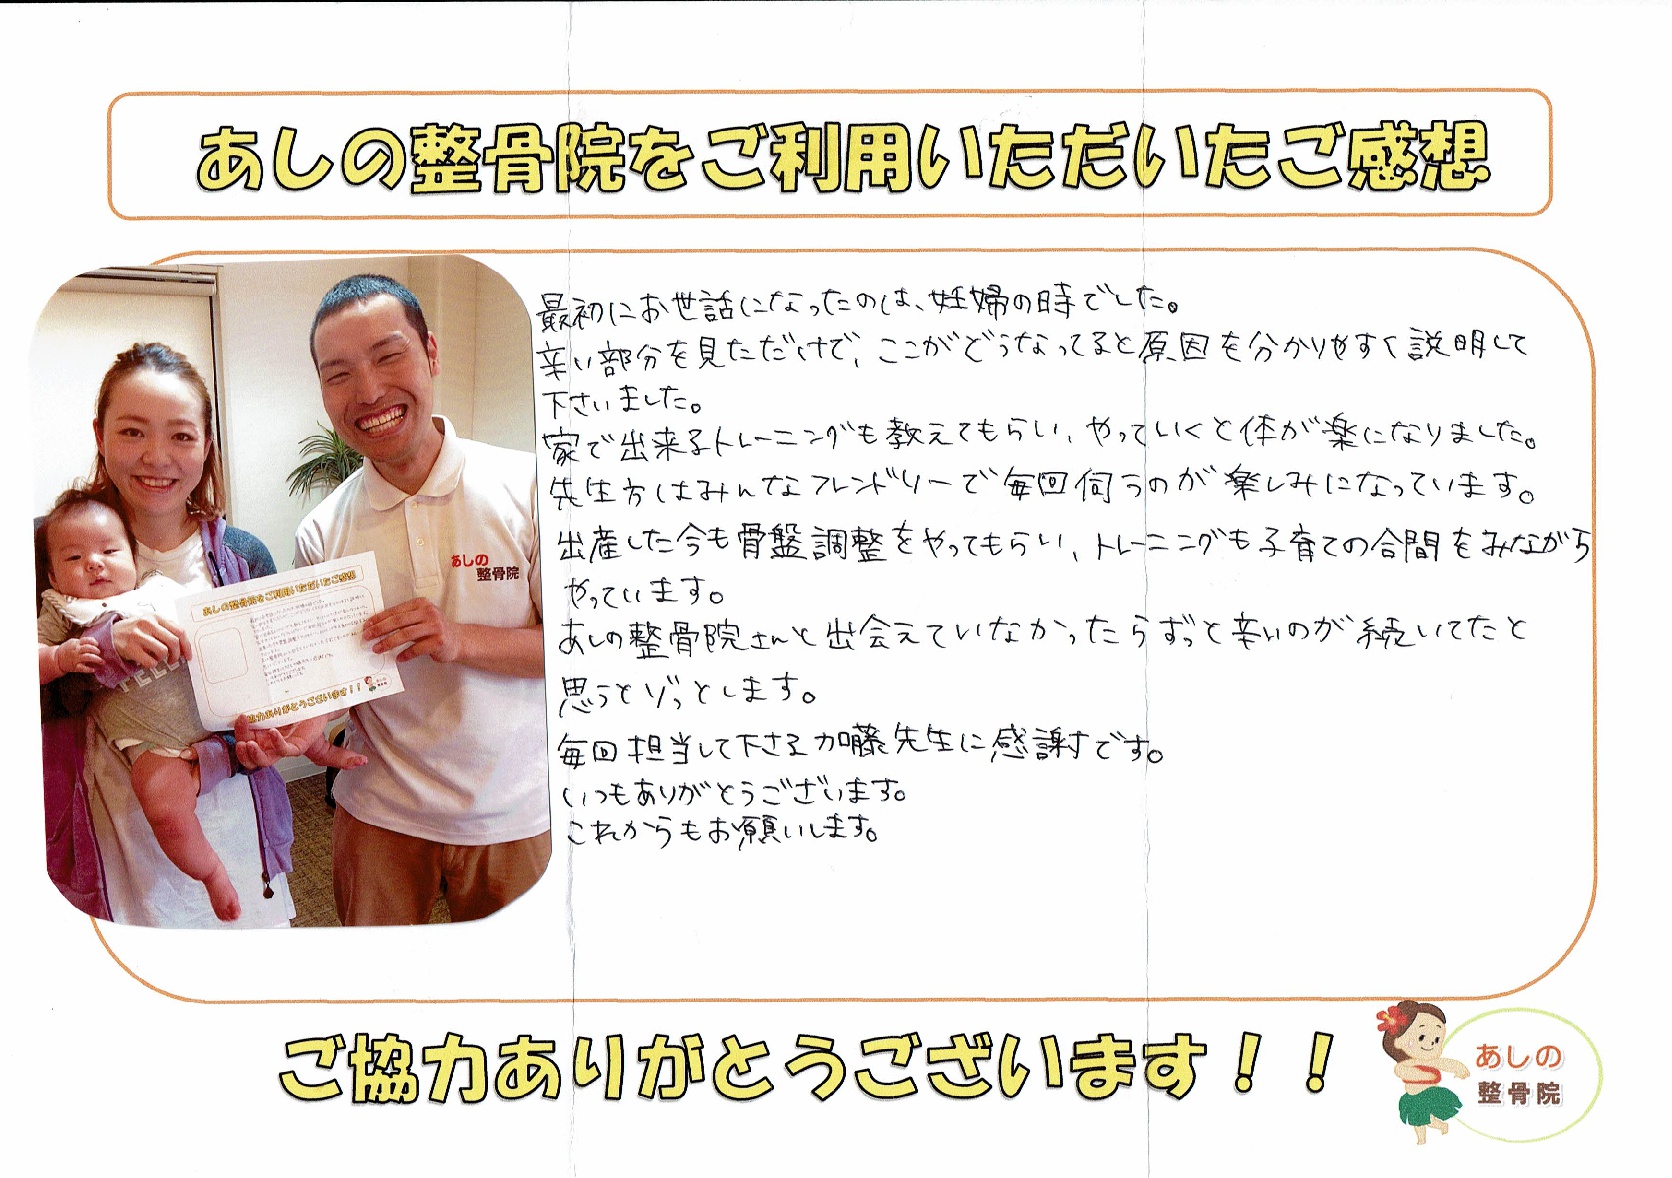 あしの整骨院をご利用いただいたご感想
最初にお世話になったのは、妊婦の時でした。
辛い部分を見ただけで、ここがどうなってると原因を分かりやすく説明して
下さいました。
家で出来るトレーニングも教えてもらい、やっていくと体が楽になりました。
先生方はみんなフレンドリーで毎回伺うのが楽しみになっています。
出産した今も骨盤調整をやってもらい、トレーニングも子育ての合間をみながら
やっています。
あしの整骨院さんと出会えていなかったらずっと辛いのが続いてたと
思うとゾっとします。
毎回担当して下さる加藤先生に感謝です。
いつもありがとうございます。
これからもお願いします。
あしの
整骨院
あしの整骨院をご利用いただいたご感想
協力ありがとうございます！！
ご協力ありがとうございます！！
あしの
整骨院